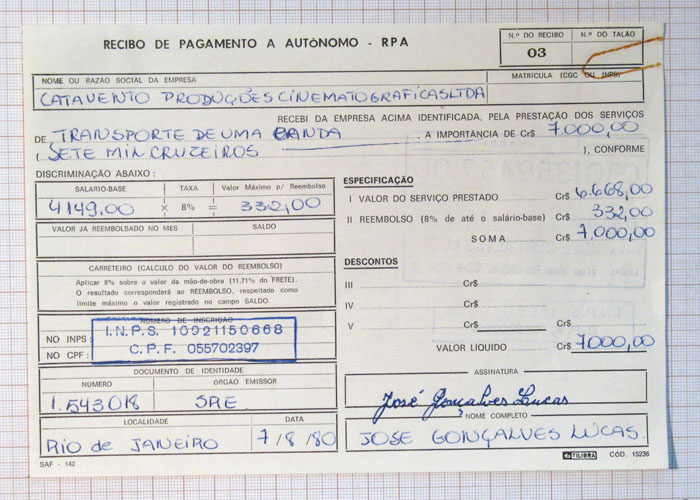 RECIBO DE PAGAMENTO A AUTÔNOMO - RPA
N.º DO RECIBO
03
N.º DO TALÃO
NOME OU RAZÃO SOCIAL DA EMPRESA
CATAVENTO PRODUÇÕES CINEMATOGRAFICAS LTDA
MATRÍCULA (CGC OU INPS)
RECEBI DA EMPRESA ACIMA IDENTIFICADA, PELA PRESTAÇÃO DOS SERVIÇOS
DE TRANSPORTE DE UMA BANDA , A IMPORTÂNCIA DE Cr$ 7.000,00
( SETE MIL CRUZEIROS ), CONFORME
DISCRIMINAÇÃO ABAIXO :
SALÁRIO-BASE TAXA Valor Máximo p/ Reembolso
4149,00 × 8% = 332,00
VALOR JÁ REEMBOLSADO NO MÊS SALDO
CARRETEIRO (CALCULO DO VALOR DO REEMBOLSO)
Aplicar 8% sobre o valor da mão-de-obra (11,71% do FRETE).
O resultado corresponderá ao REEMBOLSO, respeitado como
limite máximo o valor registrado no campo SALDO.
NÚMERO DE INSCRIÇÃO
NO INPS: I.N.P.S. 10921150668
NO CPF: C.P.F. 055702397
DOCUMENTO DE IDENTIDADE
NÚMERO ORGÃO EMISSOR
1.543018 SRE
LOCALIDADE DATA
RIO de JANEIRO 7/8/80
SAF - 142
ESPECIFICAÇÃO
I VALOR DO SERVIÇO PRESTADO Cr$ 6.668,00
II REEMBOLSO (8% de até o salário-base) Cr$ 332,00
SOMA Cr$ 7.000,00
DESCONTOS
III Cr$
IV Cr$
V Cr$ Cr$
VALOR LÍQUIDO Cr$ 7000,00
ASSINATURA
José Gonçalves Lucas
NOME COMPLETO
JOSE GONÇALVES LUCAS.
TILIBRA CÓD. 15236